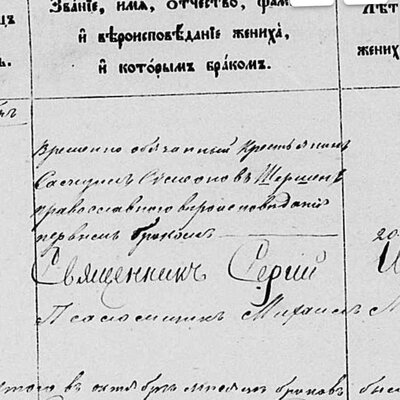 Званіе, имя, отчество, фам
и вѣроисповѣданіе жениха,
и которымъ бракомъ.
жених
Временно обязанный Крестьянинъ
Симеоновъ Шершень
православнаго вѣроисповѣданія
первымъ бракомъ
20
Священникъ Сергій
Псаломщикъ Михаилъ М
въ октябрѣ мѣсяцѣ браковъ